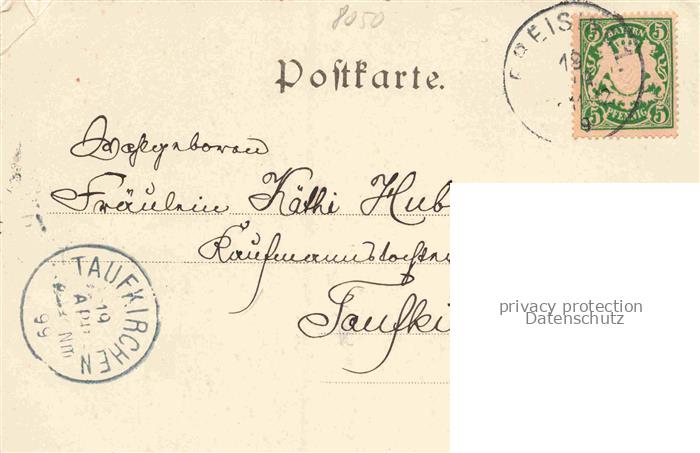 8050
Postkarte.
BAYERN
5 5
5 PFENNIG 5
Wohlgeboren
Fräulein Käthi Hub
Kaufmannstochter
Taufki
TAUFKIRCHEN
19
APR
NM
99
privacy protection
Datenschutz